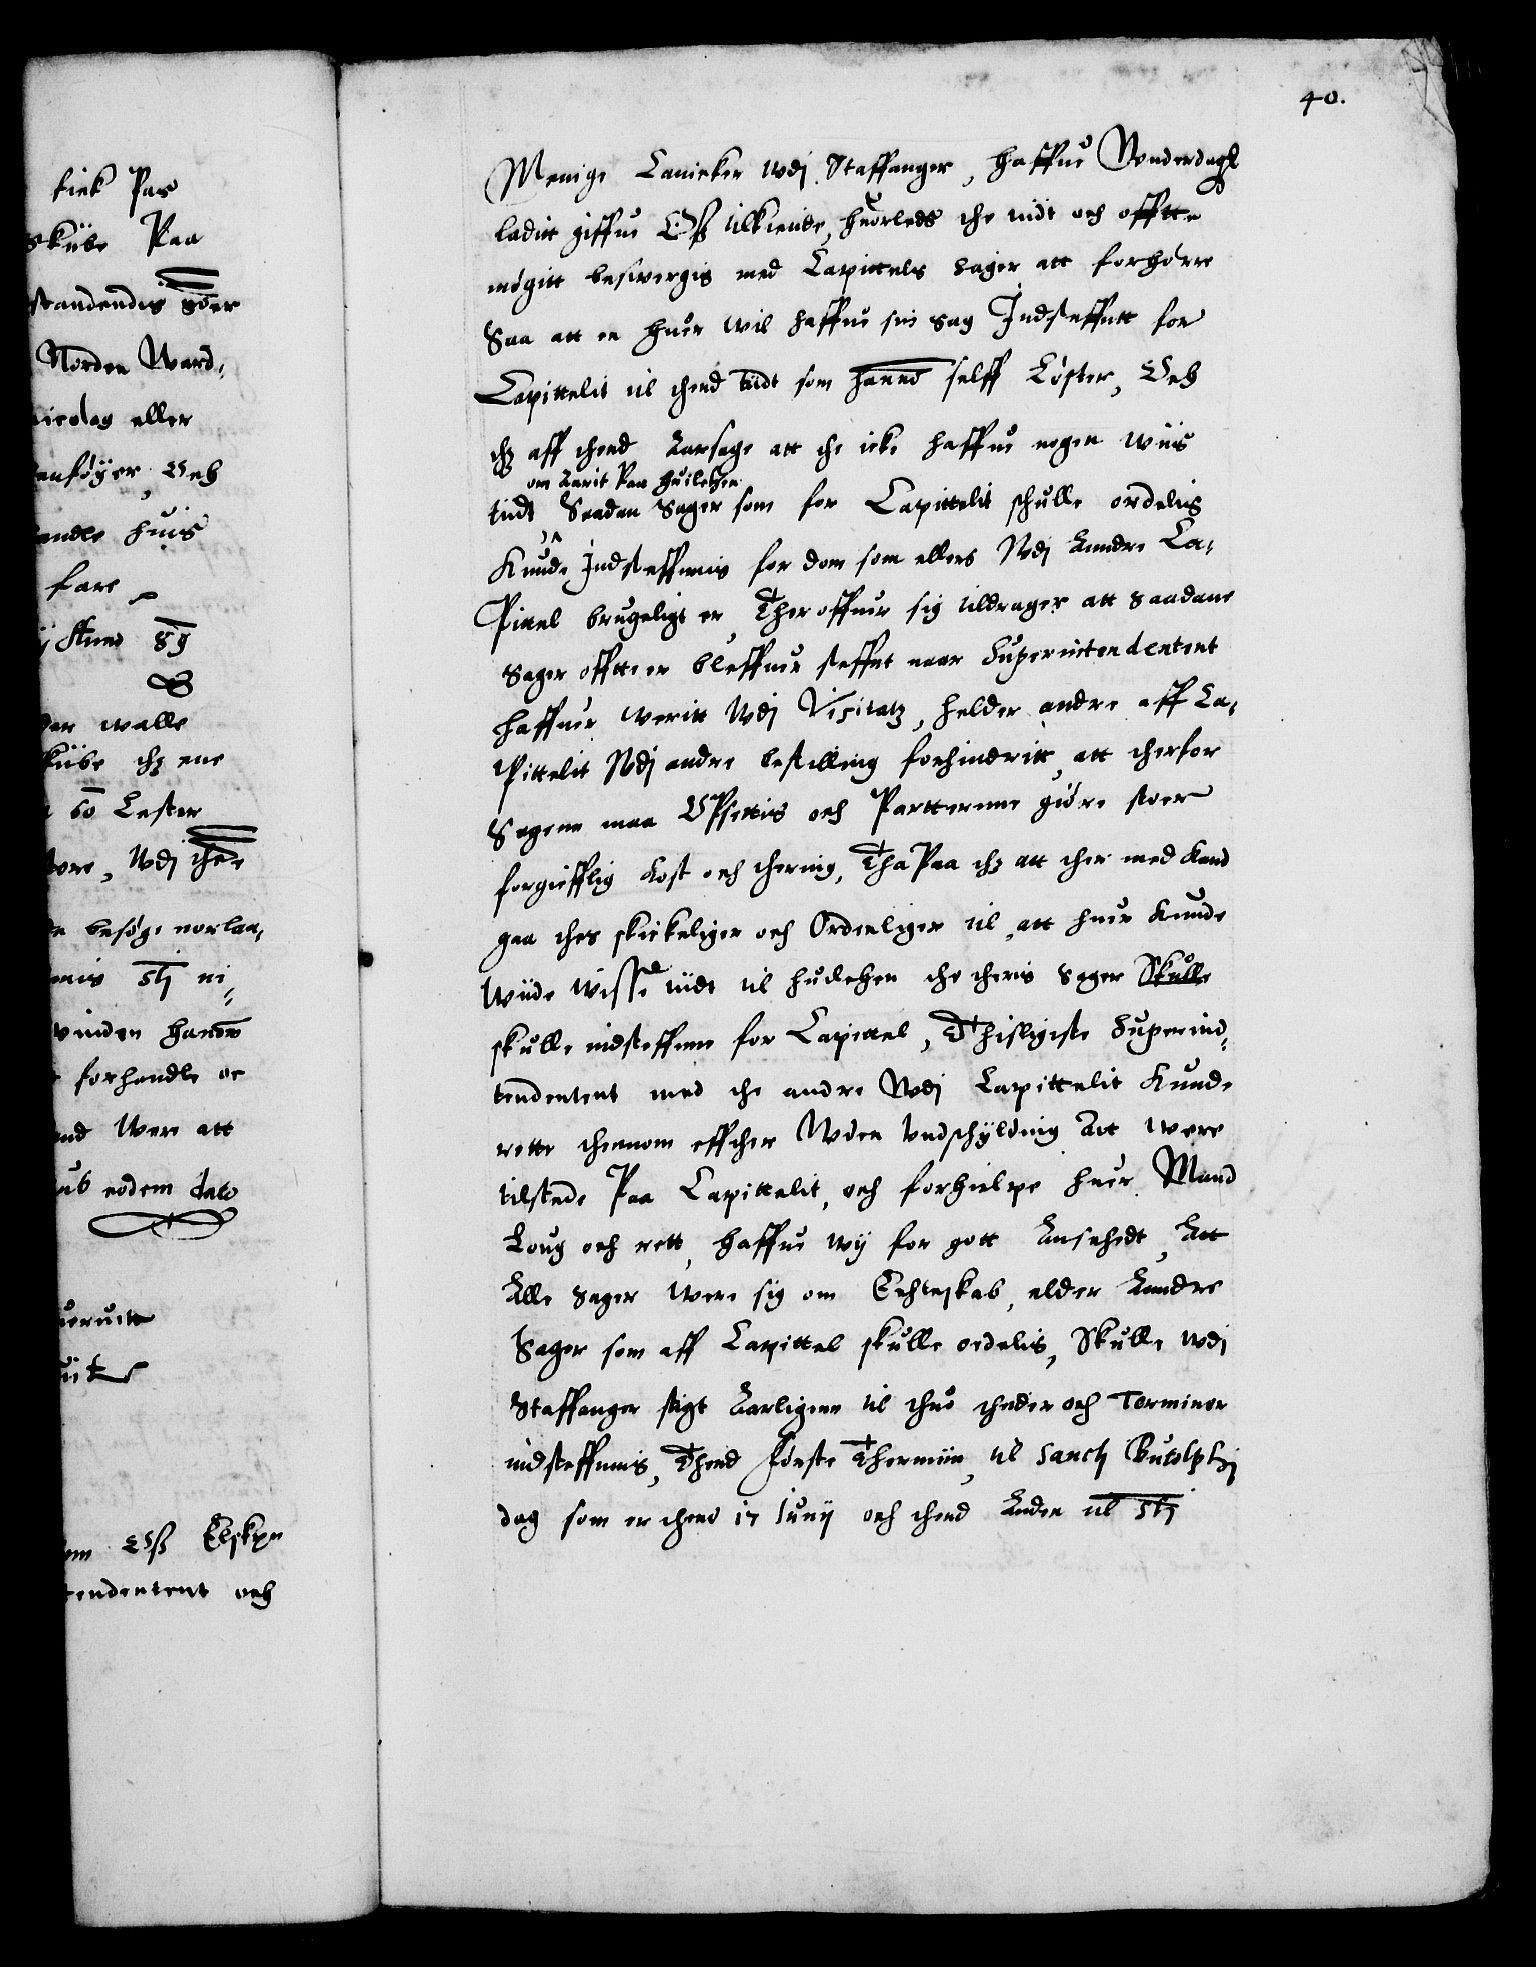 fick Pas
skube Paa
standendis goer
Norden Ward,
nicolay eller
enføyer, Och
endle huis
fare
y stund 89
der walle
skube thz ene
60 Lester
tore, Udj thee
de besøge norlaa,
enis stj ni,,
vinden hanom
forhandle oc
end Were att
ut eodem dato
ueruitt
uit
om Oss Elskxe
tendentent och
40.
Menige Canicker wdj Staffanger, haffue Vnderdagh
laditt giffue Oß tilkiende, huorledes the tidt och offtte
møgitt besuergis med Capittels sager att forhørre
Saa att en huer wil haffue sin sag Indsteffnett for
Capittelit til thend tiidt som hannom selff Løster, Och
thz aff thend Aarsage att the icke haffue nogen wiis
om Aarit Paa huilcken
tidt Saadan Sager som for Capittelit schulle ordelis
Kunde Indsteffnnis for dom som ellers Udj Anndre Ca,
Pittel brugeligt er, Ther offuer sig tildrager att saadane
Sager offtte er bleffuen steffnt naar Superintendentent
haffuer veritt Udj Visitatz, helder andre aff Ca,
Pittelit Udj andre bestilling forhindritt, att therfor
Sagenn maa Opsettis och Partterenne giøre stoer
forgiefflig Kost och thering, Tha Paa thz att ther med Kand
gaa thes skickeliger och Ordenliger til, att huer Kunde
Wiide wisse tiidt til huilcken the theris Sager Skulle
skulle indsteffnne for Capittel, Thisligiste Superind,,
tendentent med the andre Udj Capittelit Kunde
rette thennom effther Uden Undschyldning Att were
tilstede Paa Capittelit, och forhielpe huer Mand
Loug och rett, haffue wij for gott Ansehedt, Att
Alle Sager were sig om Echteskab, elder Anndre
Sager som aff Capittel skulle ordelis, Skulle wdj
Staffanger stigt Aarligenn til thuo theder och Terminer
indsteffnnis, Thend første Thermiin, til Sancti Butolphj
dag som er thend 17 Junij och thend Anden til Stj